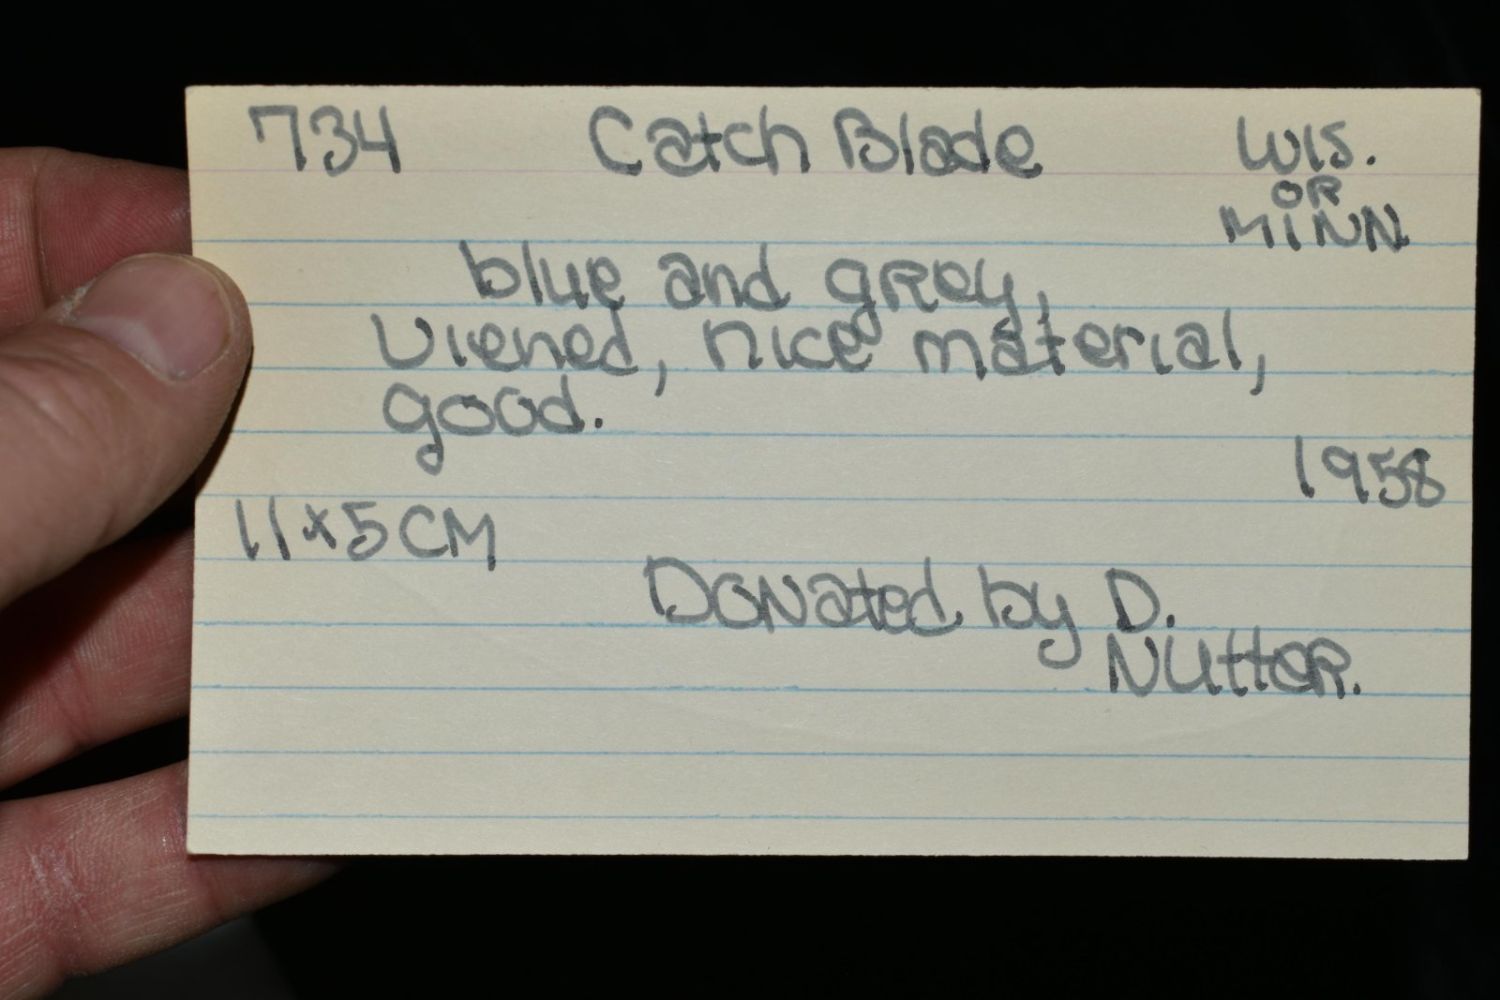 734 Catch Blade WIS.
OR
MINN
blue and grey,
Viened, nice material,
good.
1958
11x5CM
Donated by D.
Nutter.